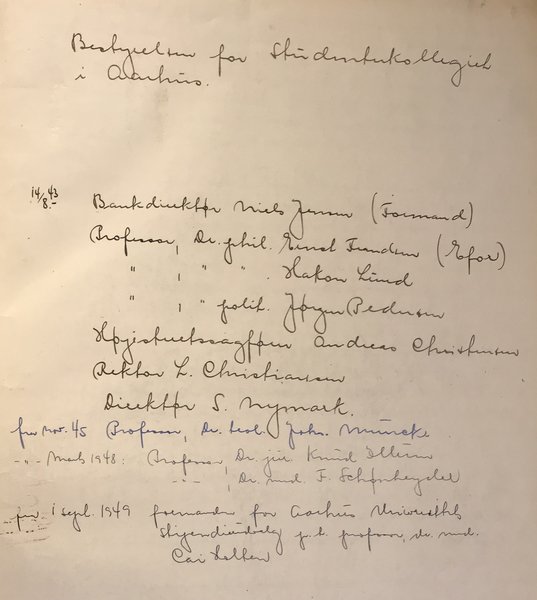 Bestyrelsen for Studenterkollegiet
i Aarhus.
14/8.43 Bankdirektør Niels Jensen (Formand)
Professor, Dr. phil. Ernst Frandsen (Efor)
" , " " . Hakon Lund
" , " polit. Jørgen Pedersen
Højesteretssagfører Andreas Christensen
Rektor L. Christiansen
Direktør S. Nymark.
fra nov. 45 Professor, Dr. teol. Johs. Munck
-"- Marts 1948: Professor, Dr. jur. Knud Illum
-"- , Dr. med. F. Schønheyder
fra 1 sept. 1949 formanden for Aarhus Universitets
Stipendieudvalg p.t. professor, dr. med.
Cai Holten